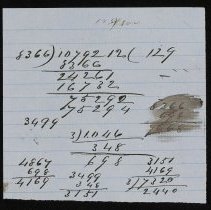 8366)1079212(129
8366
24261
16732
75292
75294
3499
3)1046
348
698
4867
698
4169
3499
348
3151
3151
4169
3)7320
2440